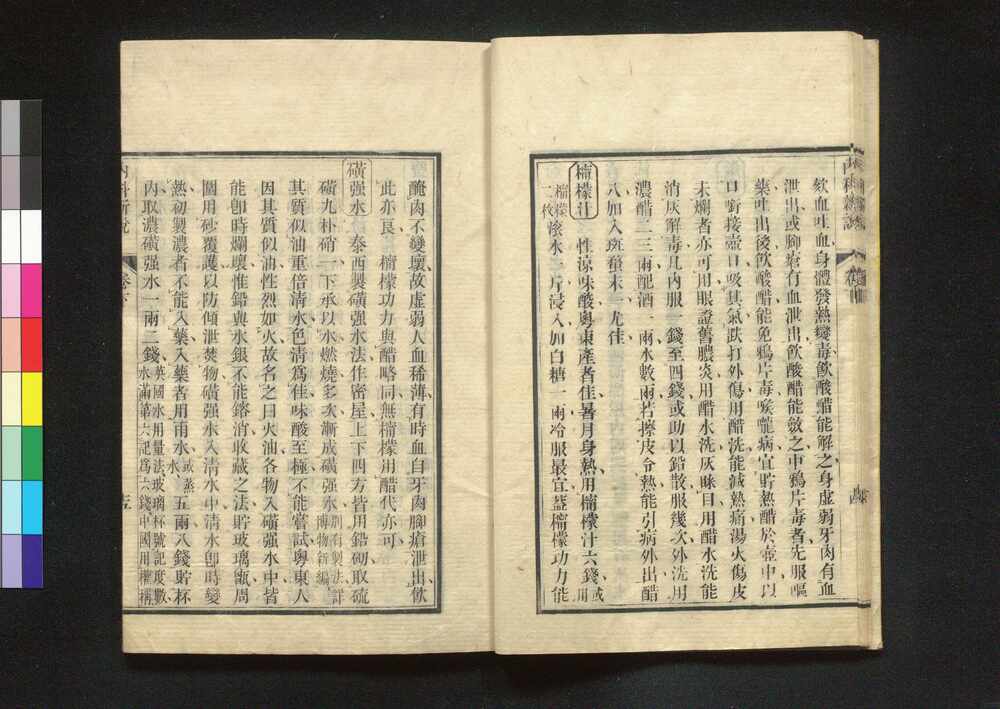 欬血吐血身體發熱變毒飲酸醋能解之身虛弱牙肉有血
泄出或腳瘡有血泄出飲酸醋能斂之中鴉片毒者先服嘔
藥吐出後飲酸醋能免鴉片毒喉嚨病宜貯熱醋於壺中以
口啣接壺口吸其氣跌打外傷用醋洗能減熱痛湯火傷皮
未爛者亦可用眼證舊膿炎用醋水洗灰眯目用醋水洗能
消灰解毒凡內服一錢至四錢或助以鉛散服幾次外洗用
濃醋二三兩配酒一兩水數兩若擦皮令熱能引病外出醋
八加入斑蝥末一尤佳
檸檬汁 性涼味酸粵東產者佳暑月身熱用檸檬汁六錢或用
檸檬二枚滾水一斤浸入加白糖一兩冷服最宜蓋檸檬功力能
醃肉不變壞故虛弱人血稀薄有時血自牙肉腳瘡泄出飲
此亦良 檸檬功力與醋略同無檸檬用醋代亦可
磺强水 泰西製磺强水法作密屋上下四方皆用鉛砌取硫
磺九朴硝一下承以水燃燒多次漸成磺强水別有製法詳博物新編
其質似油重倍清水色清爲佳味酸至極不能嘗試粵東人
因其質似油性烈如火故名之曰火油各物入磺强水中皆
能卽時爛壞惟鉛與水銀不能鎔消收藏之法貯玻璃瓶周
圍用砂覆護以防傾泄焚物磺强水入清水中清水卽時變
熱初製濃者不能入藥入藥者用雨水或蒸水五兩八錢貯杯
內取濃磺强水一兩二錢英國水用量法玻璃杯號記度數水滿第六記爲六錢中國用權稱
內科新說
卷下